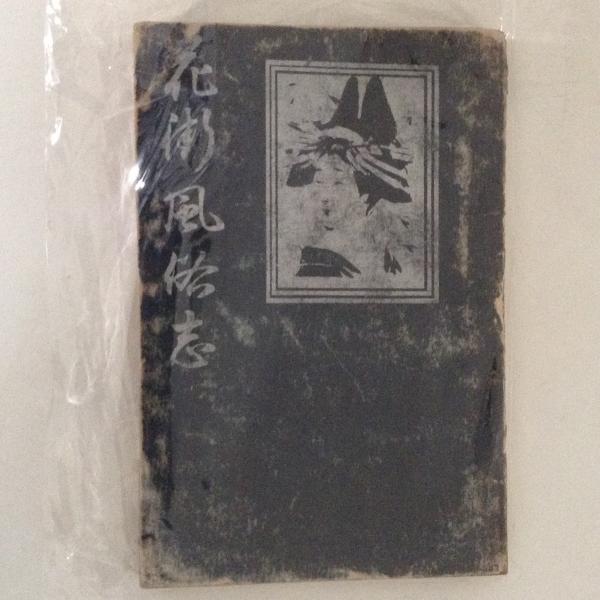 花街風俗志